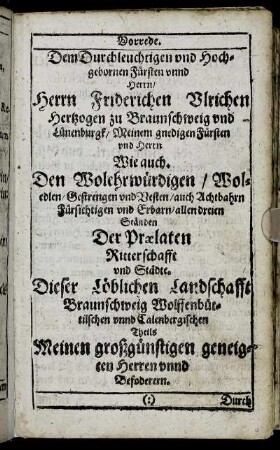 Vorrede.
Dem Durchleuchtigen und Hoch-
gebornen Fürsten vnnd
Herrn/
Herrn Friderichen Vlrichen
Hertzogen zu Braunschweig vnd
Lünenburgk/ Meinem gnedigen Fürsten
vnd Herrn
Wie auch.
Den Wolehrwürdigen / Wol-
edlen/ Gestrengen vnd Vesten/ auch Achtbahrn
Fürsichtigen vnd Erbarn/ allen dreien
Ständen
Der Prælaten
Ritterschafft
vnd Städte.
Dieser Löblichen Landschafft
Braunschweig Wolffenbüt-
tilschen vnnd Calenbergischen
Theils
Meinen großgünstigen geneig-
ten Herren vnnd
Befoderern.
(:) Durch